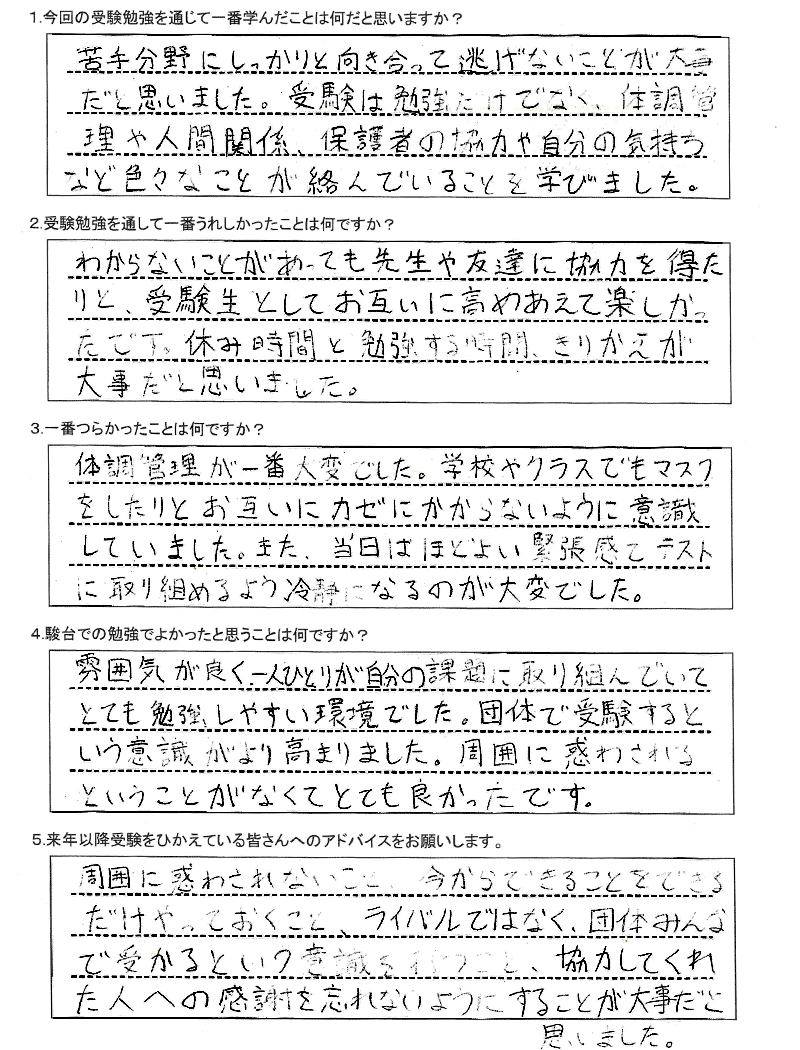 1.今回の受験勉強を通じて一番学んだことは何だと思いますか？
苦手分野にしっかりと向き合って逃げないことが大事
だと思いました。受験は勉強だけでなく、体調管
理や人間関係、保護者の協力や自分の気持ち
など色々なことが絡んでいることを学びました。
2.受験勉強を通して一番うれしかったことは何ですか？
わからないことがあっても先生や友達に協力を得た
りと、受験生としてお互いに高めあえて楽しかっ
たです。休み時間と勉強する時間、きりかえが
大事だと思いました。
3.一番つらかったことは何ですか？
体調管理が一番大変でした。学校やクラスでもマスク
をしたりとお互いにカゼにかからないように意識
していました。また、当日はほどよい緊張感でテスト
に取り組めるよう冷静になるのが大変でした。
4.駿台での勉強でよかったと思うことは何ですか？
雰囲気が良く一人ひとりが自分の課題に取り組んでいて
とても勉強しやすい環境でした。団体で受験すると
いう意識がより高まりました。周囲に惑わされる
ということがなくてとても良かったです。
5.来年以降受験をひかえている皆さんへのアドバイスをお願いします。
周囲に惑わされないこと、今からできることをできる
だけやっておくこと、ライバルではなく、団体みんな
で受かるという意識を持つこと、協力してくれ
た人への感謝を忘れないようにすることが大事だと
思いました。